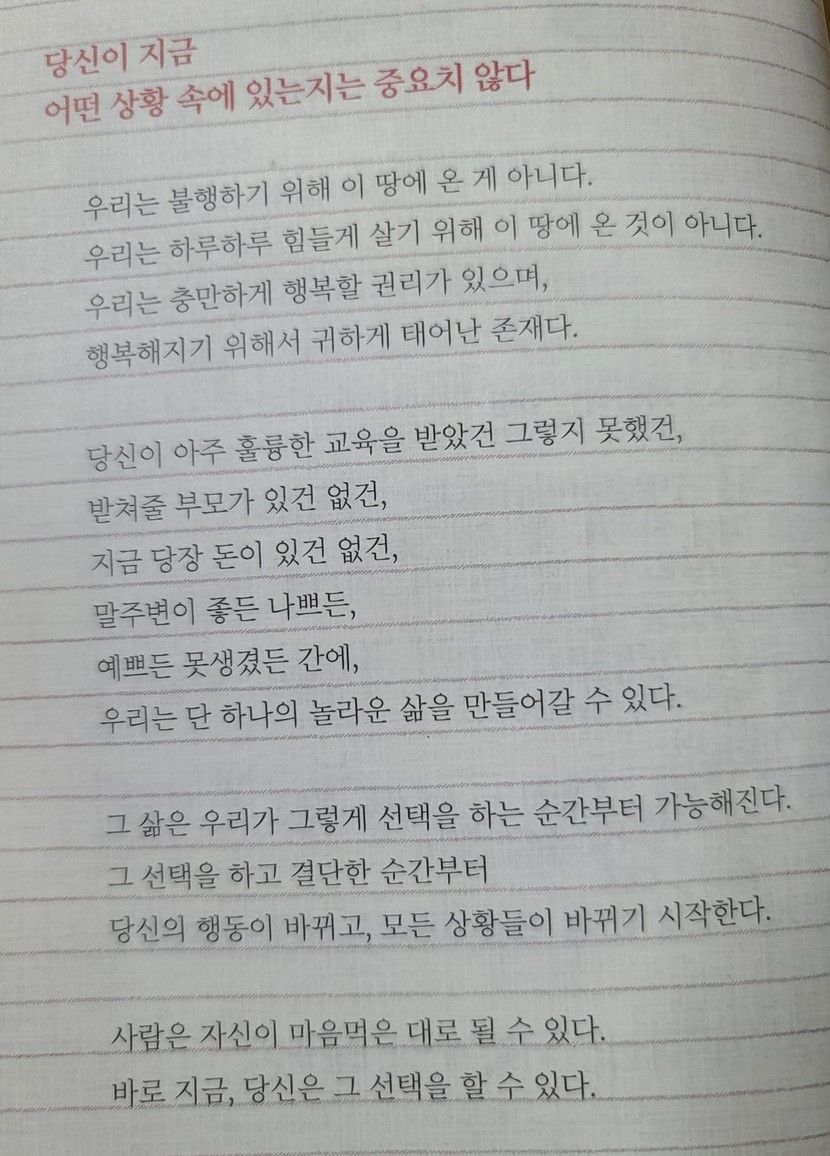 당신이 지금
어떤 상황 속에 있는지는 중요치 않다
우리는 불행하기 위해 이 땅에 온 게 아니다.
우리는 하루하루 힘들게 살기 위해 이 땅에 온 것이 아니다.
우리는 충만하게 행복할 권리가 있으며,
행복해지기 위해서 귀하게 태어난 존재다.
당신이 아주 훌륭한 교육을 받았건 그렇지 못했건,
받쳐줄 부모가 있건 없건,
지금 당장 돈이 있건 없건,
말주변이 좋든 나쁘든,
예쁘든 못생겼든 간에,
우리는 단 하나의 놀라운 삶을 만들어갈 수 있다.
그 삶은 우리가 그렇게 선택을 하는 순간부터 가능해진다.
그 선택을 하고 결단한 순간부터
당신의 행동이 바뀌고, 모든 상황들이 바뀌기 시작한다.
사람은 자신이 마음먹은 대로 될 수 있다.
바로 지금, 당신은 그 선택을 할 수 있다.